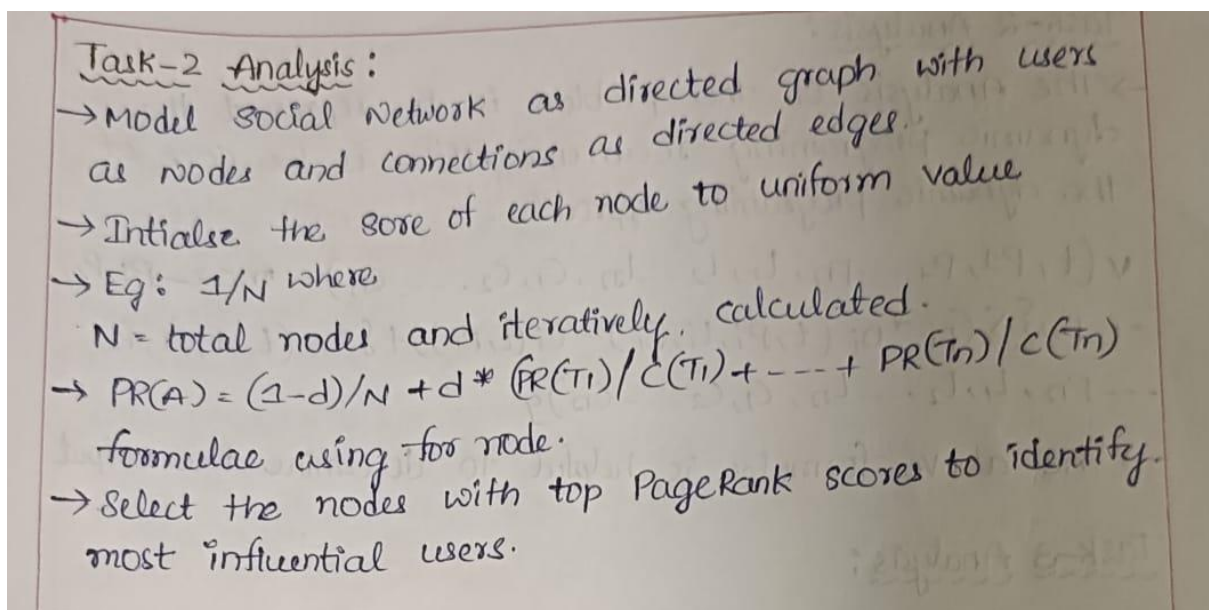 Task-2 Analysis:
→ Model Social Network as directed graph with users
as nodes and connections as directed edges.
→ Intialse the sore of each node to uniform value
→ Eg: 1/N where
N = total nodes and iteratively. calculated.
→ PR(A) = (1-d)/N + d * (PR(T1)/C(T1) + ---- + PR(Tn)/C(Tn)
formulae using for node.
→ Select the nodes with top PageRank scores to identify.
most influential users.